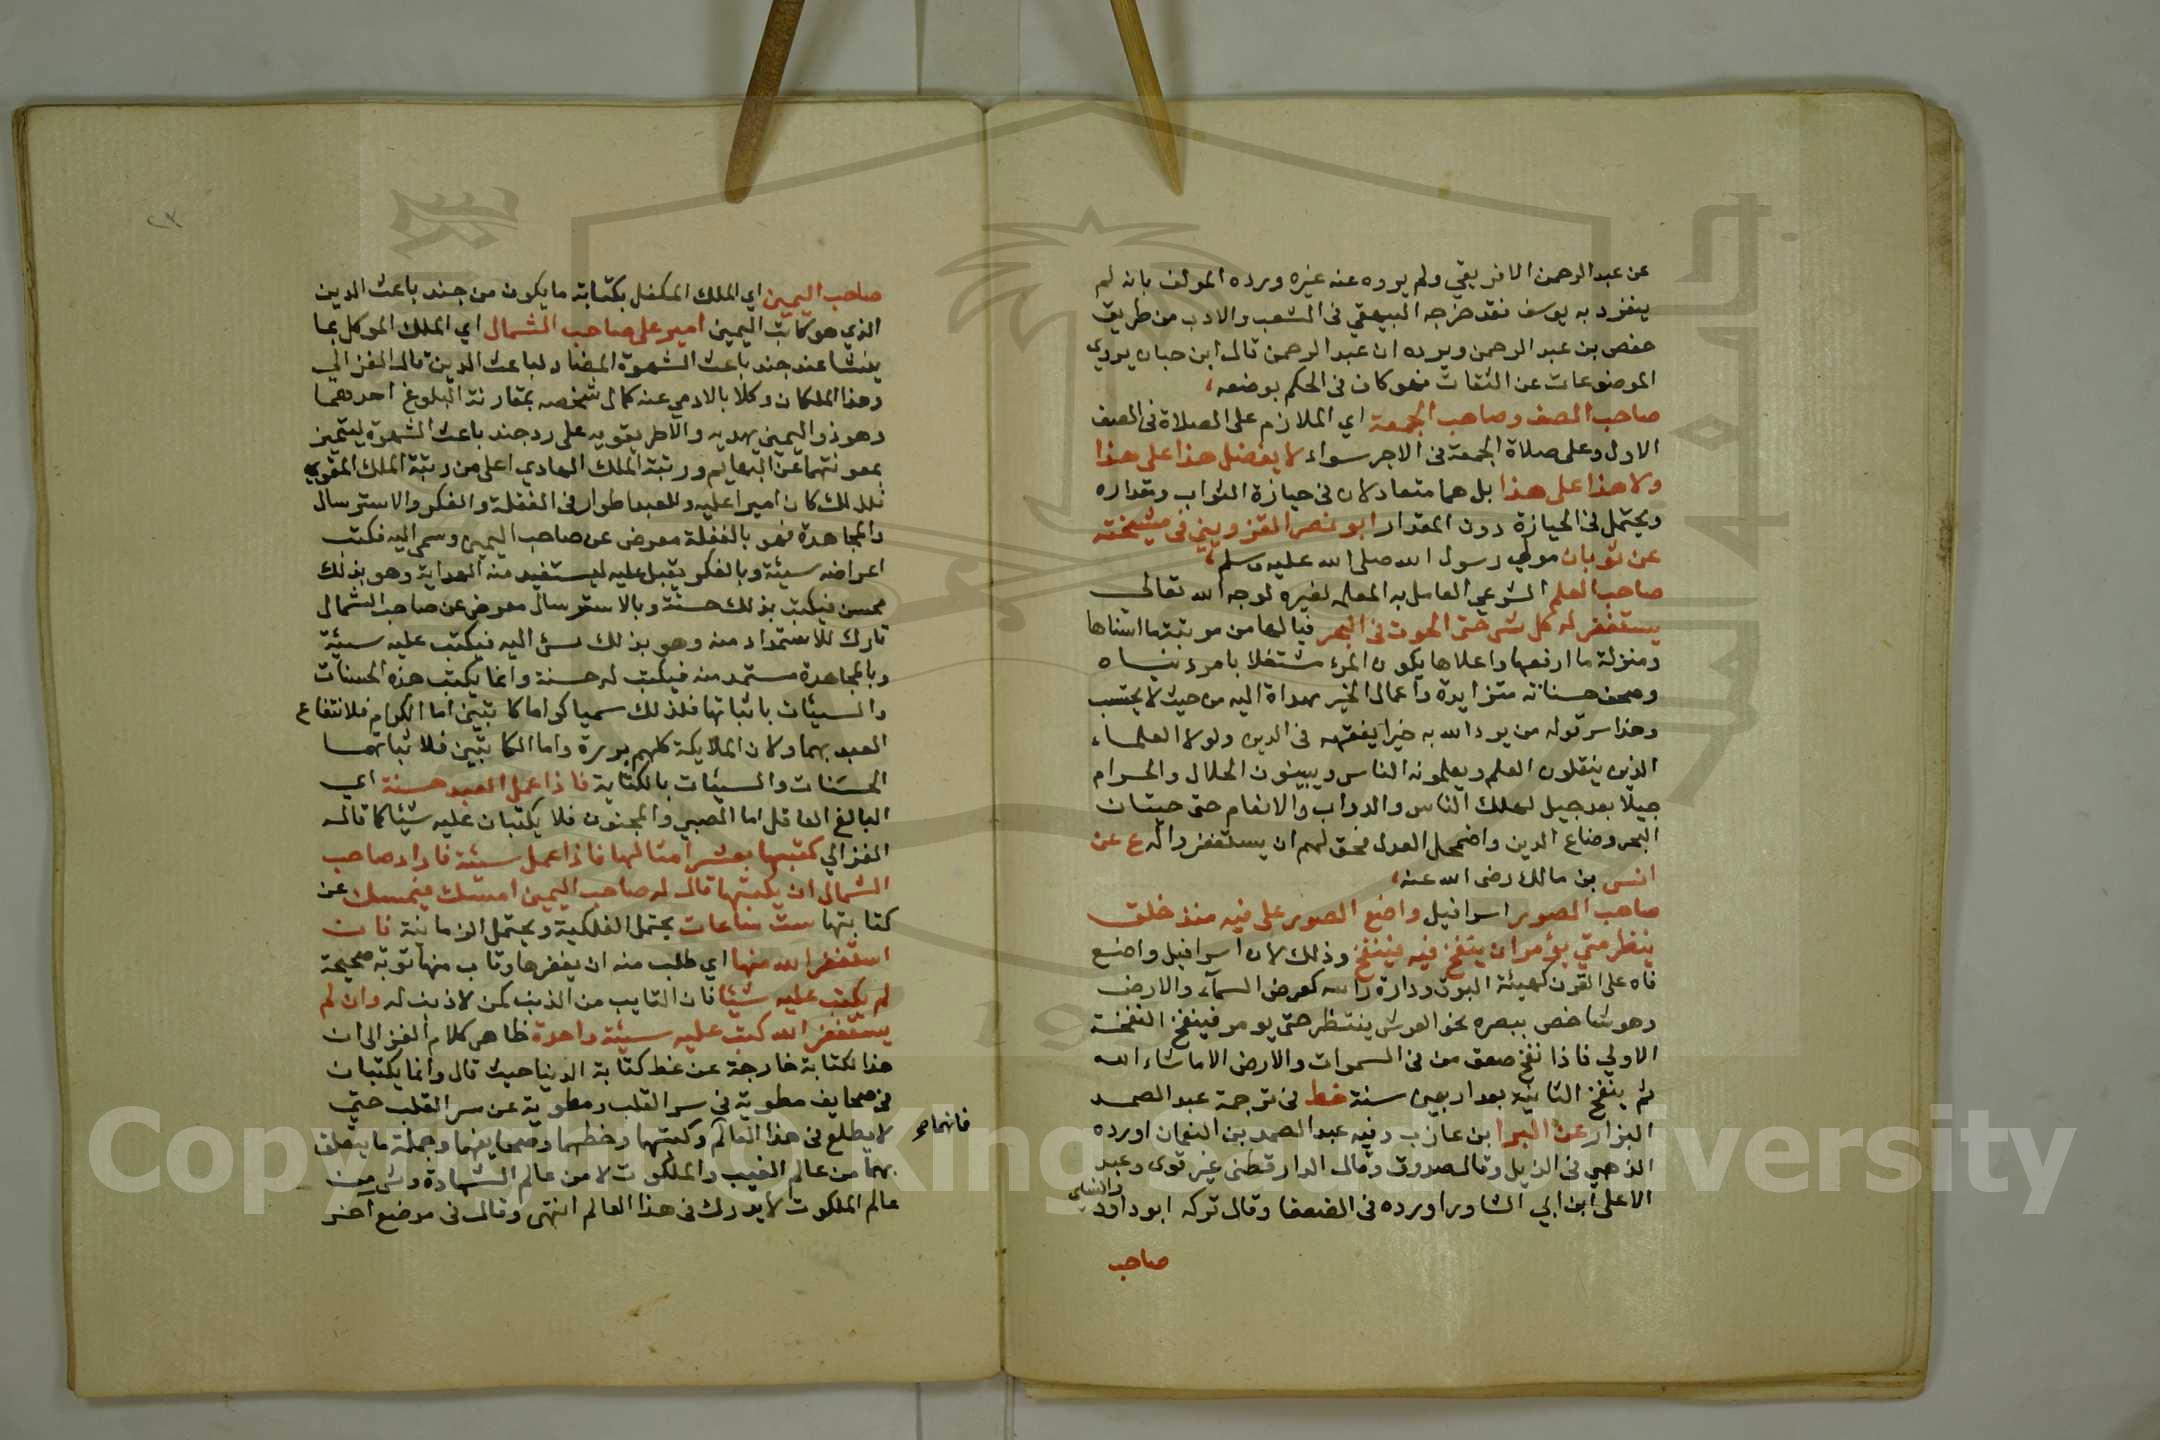 عن عبد الرحمن الافريقي ولم يروه عنه غيره ورده المولف بانه لم
ينفرد به يوسف فقد خرجه البيهقي في الشعب والادب من طريق
حفص بن عبد الرحمن ويرده ان عبد الرحمن قال ابن حبان يروي
الموضوعات عن الثقات فهو كاف في الحكم بوضعه
صاحب الصف وصاحب الجمعة اي الملازم على الصلاة في الصف
الاول وعلى صلاة الجمعة في الاجر سواء لا يفضل هذا على هذا
ولا هذا على هذا بل هما متعادلان في حيازة الثواب ومقداره
ويحتمل في الحيازة دون المقدار ابو نصر القزويني في مشيخته
عن ثوبان مولي رسول الله صلى الله عليه وسلم
صاحب العلم الشرعي العامل به المعلمه لغيره لوجه الله تعالى
يستغفر له كل شي حتى الحوت في البحر فيا لها من مرتبة ما اسناها
ومنزلة ما ارفعها واعلاها يكون المرء مشتغلا بامر دنياه
وصحف حسناته متزايدة واعمال الخير مهداة اليه من حيث لا يحتسب
وهذا سر قوله من يرد الله به خيرا يفقهه في الدين ولولا العلماء
الذين ينقلون العلم ويعلمونه الناس ويبينون الحلال والحرام
جيلا بعد جيل لهلك الناس والدواب والانعام حتى حيتان
البحر وضاع الدين واضمحل العدل فحق لهم ان يستغفروا له ع عن
انس بن مالك رضى الله عنه
صاحب الصور اسرافيل واضع الصور على فيه منذ خلق
ينظر متى يؤمر ان ينفخ فيه فينفخ وذلك لان اسرافيل واضع
فاه على القرن كهيئة البوق ودارة راسه كعرض السمآء والارض
وهو شاخص ببصره نحو العرش ينتظر حتى يومر فينفخ النفخة
الاولي فاذا نفخ صعق من في السموات والارض الا ما شاء الله
ثم ينفخ الثانية بعد اربعين سنة خط في ترجمة عبد الصمد
البزار عن البرا ابن عازب وفيه عبد الصمد بن النعمان اورده
الذهبي في الذيل وقال صدوق وقال الدارقطني غير قوى وعبد
الاعلى ابن ابي المساور اورده في الضعفا وقال تركه ابو داود
والنسائي
صاحب
٢٣
صاحب اليمين اي الملك المكفل بكتابة ما يكون من جند باعث الدين
الذي هو كاتب اليمين امير على صاحب الشمال اي الملك الموكل بما
ينشا عند جند باعث الشهوة المضاد لباعث الدين قال الغزالي
وهذا الملكان وكلا بالادمي عند كمال شخصه بمقارنة البلوغ احدهما
وهو ذو اليمين يهديه والاخر يقويه على رد جند باعث الشهوة ليتميز
بمعونتهما عن البهايم ورتبة الملك الهادي اعلى من رتبة الملك المقوي
فلذلك كان اميرا عليه وللعبد اطوار في الغفلة والفكر والاسترسال
والمجاهدة فهو بالغفلة معرض عن صاحب اليمين ومسي اليه فكتب
اعراضه سيئة وبالفكر يقبل عليه ليستفيد منه الهداية وهو بذلك
محسن فيكتب بذلك حسنة وبالاسترسال معرض عن صاحب الشمال
تارك للاستمداد منه وهو بذلك مسئ اليه فيكتب عليه سيئة
وبالمجاهدة مستمد منه فيكتب له حسنة وانما يكتب هذه الحسنات
والسيئات باثباتها فلذلك سميا كراما كاتبين اما الكرام فلانتفاع
العبد بهما ولان الملايكة كلهم بررة واما الكاتبين فلاثباتهما
الحسنات والسيئات بالكتابة فاذا عمل العبد حسنة اي
البالغ العاقل اما الصبي والمجنون فلا يكتبان عليه شيئا كما قاله
الغزالي كتبها بعشر امثالها فاذا عمل سيئة فاراد صاحب
الشمال ان يكتبها قال له صاحب اليمين امسك فيمسك عن
كتابتها ست ساعات يحتمل الفلكية ويحتمل الزمانية فان
استغفر الله منها اي طلب منه ان يغفرها وتاب منها توبة صحيحة
لم يكتب عليه شيئا فان التايب من الذنب كمن لا ذنب له وان لم
يستغفر الله كتب عليه سيئة واحدة ظاهر كلام الغزالى ان
هذا لكتابة خارجة عن نمط كتابة الدنيا حيث قال وانما يكتبان
في صحايف مطوية في سر القلب ومطوية عن سر القلب حتي
لا يطلع في هذا العالم وكتبتهما وخطهما وصحايفهما وجملة ما يتعلق
فانهما صح
بهما من عالم الغيب والملكوت لا من عالم الشهادة وشى من
عالم الملكوت لا يدرك في هذا العالم انتهى وقال في موضع آخر
Copyright © King Saud University
جامعة الملك سعود
19